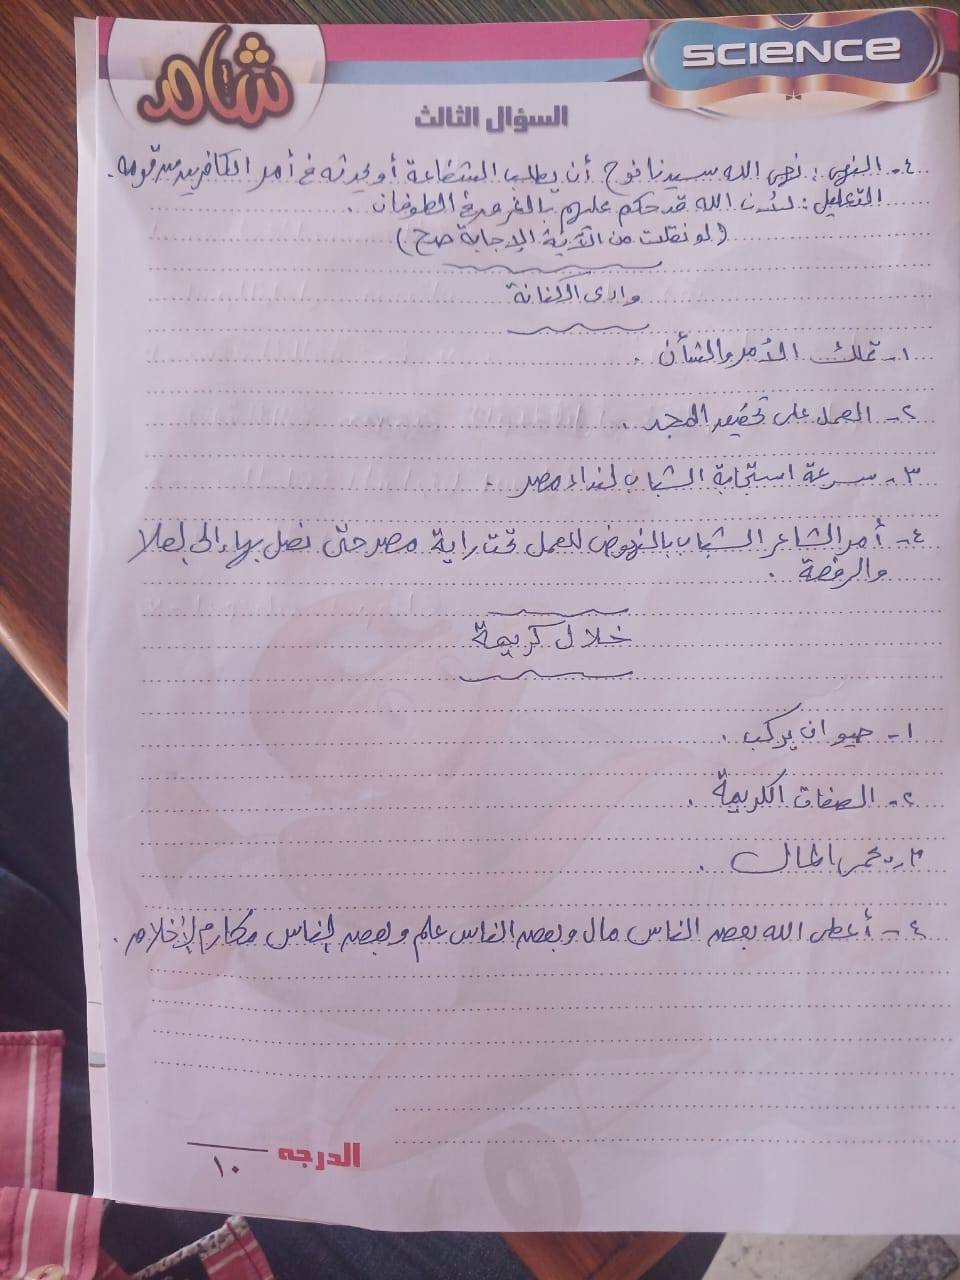 شامل
SCIENCE
السؤال الثالث
٤- النهي: نهى الله سيدنا نوح أن يطلب الشفاعة أو يحدثه في أمر الكافرين من قومه.
التعليل: لأن الله قد حكم عليهم بالغرق في الطوفان.
(لو نقلت من الآية الإجابة صح)
وادى الكنانة
١- تملك الأمر والشأن.
٢- العمل على تحقيق المجد.
٣- سرعة استجابة الشباب لنداء مصر.
٤- أمر الشاعر الشباب بالنهوض للعمل تحت راية مصر حتى نصل بها إلى العلا
والرفعة.
خلال كريمة
١- حيوان يركب.
٢- الصفات الكريمة.
٣- المال.
٤- أعطى الله بعض الناس مال وبعض الناس علم وبعض الناس مكارم الأخلاق.
الدرجه
١٠